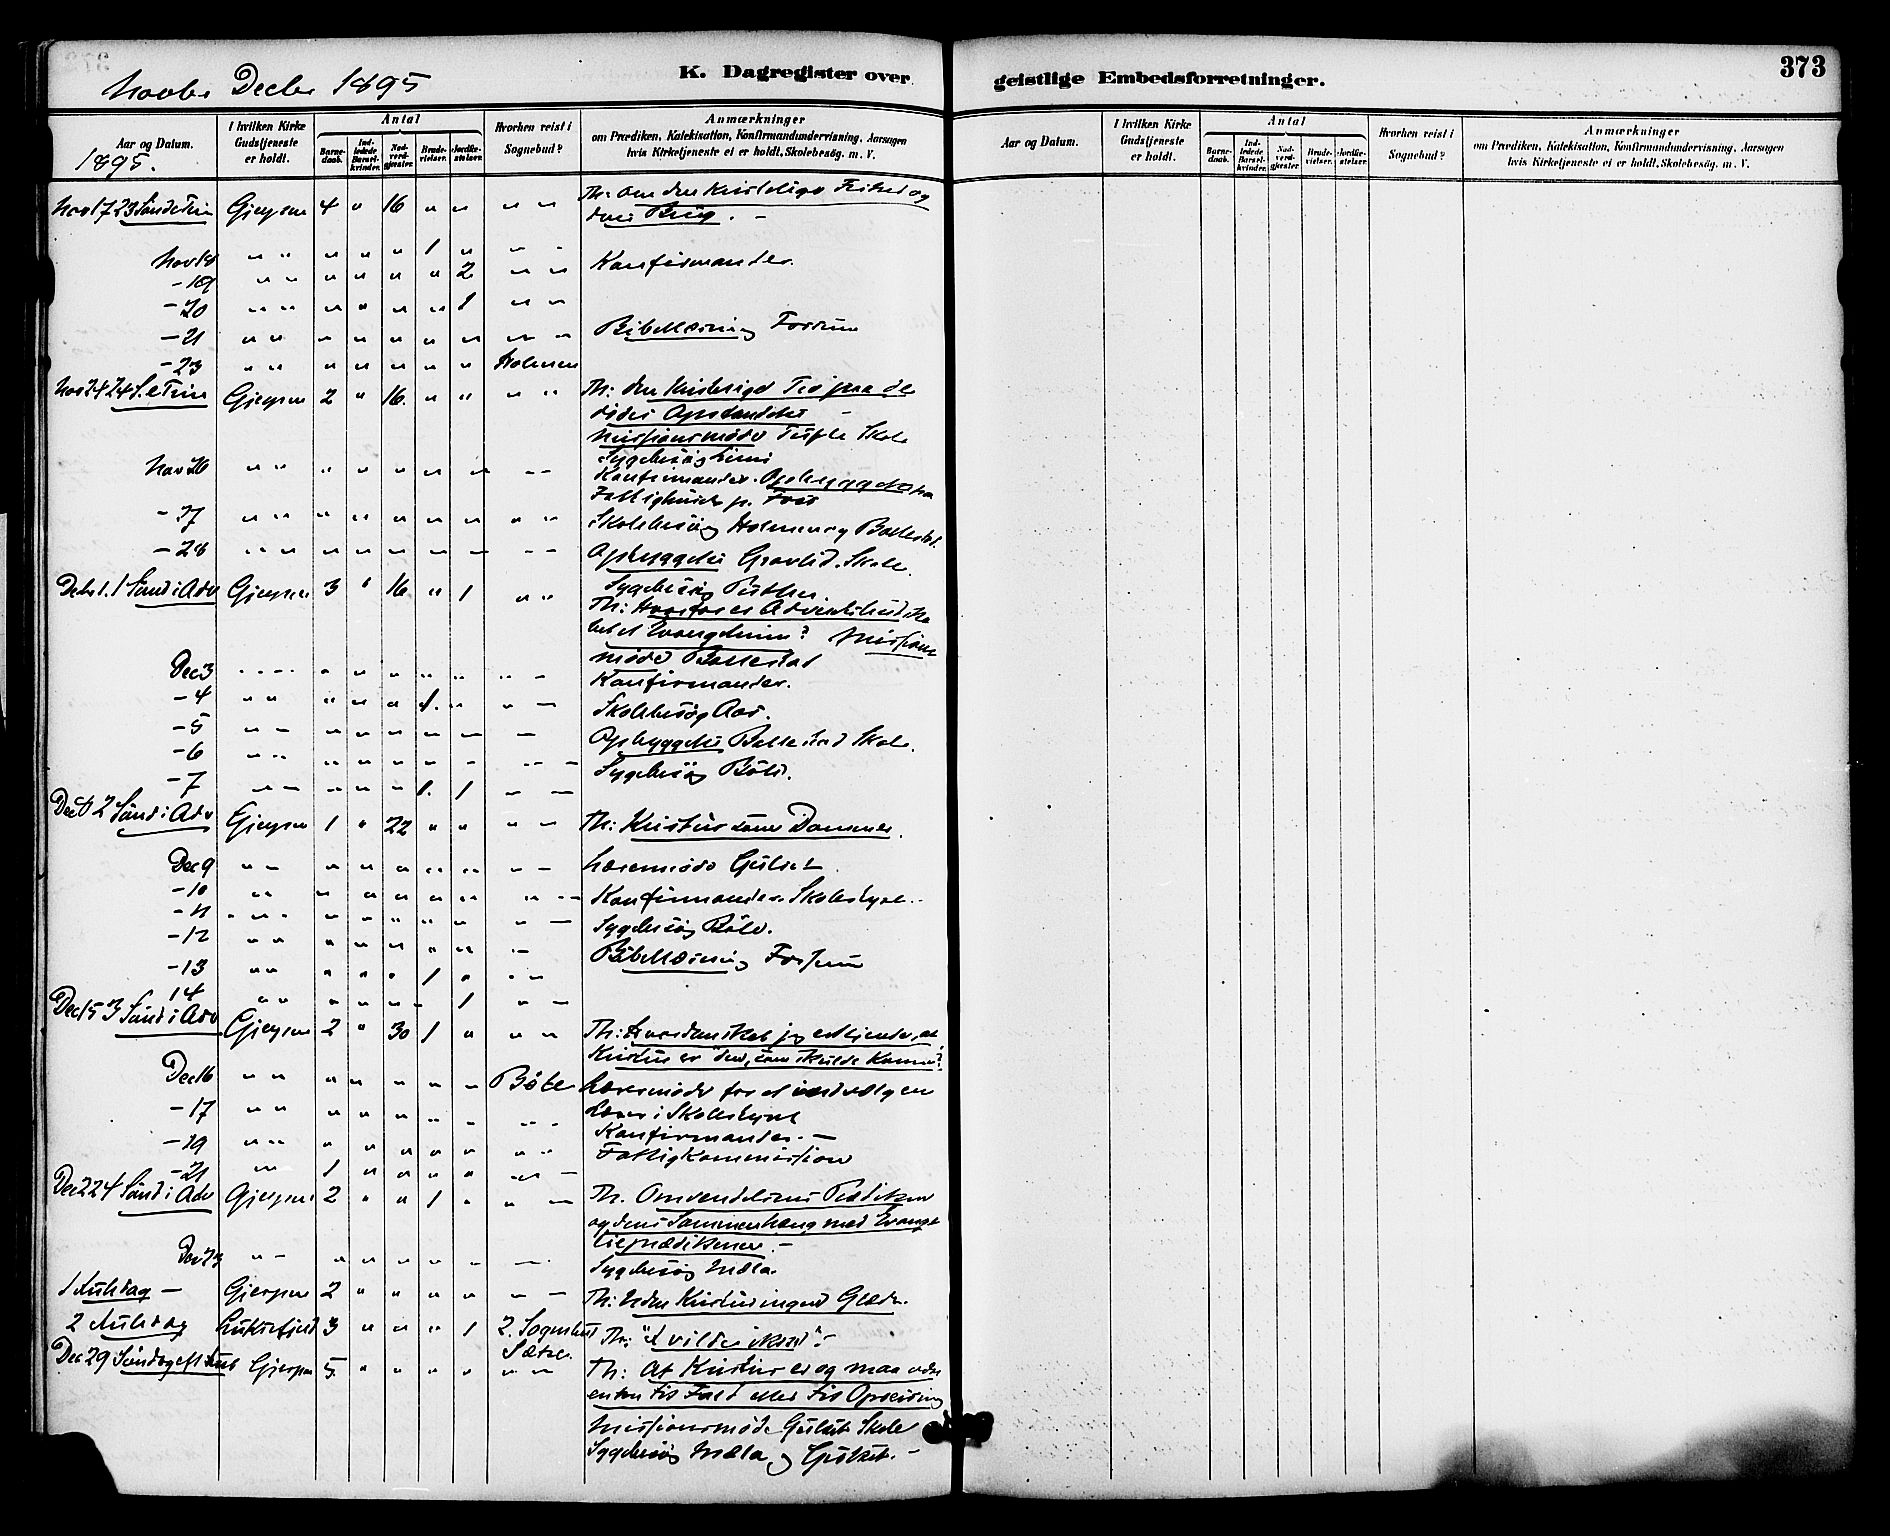 Novbr Decbr 1895
K. Dagregister over
geistlige Embedsforretninger.
373
Aar og Datum.
1895.
I hvilken Kirke Gudstjeneste er holdt.
Antal
Barnedaab.
Indledede Barselkvinder.
Nadverdgjester.
Brudevielser.
Jordfæstelser.
Hvorhen reist i Sognebud?
Anmærkninger
om Prædiken, Katekisation, Konfirmandundervisning, Aarsagen
hvis Kirketjeneste ei er holdt, Skolebesøg. m. V.
Aar og Datum.
I hvilken Kirke Gudstjeneste er holdt.
Antal
Barnedaab.
Indledede Barselkvinder.
Nadverdgjester.
Brudevielser.
Jordfæstelser.
Hvorhen reist i Sognebud?
Anmærkninger
om Prædiken, Katekisation, Konfirmandundervisning, Aarsagen
hvis Kirketjeneste ei er holdt, Skolebesøg. m. V.
Nov 17 23 Sønd e Trin Gjerpen 4 " 16 " " " " Th: Om den kristelige Frihed og
dens Brug. –
Nov 18 " " " " " 1 " " "
-19 " " " " " " 2 " " Konfirmander.
-20 " " " " " " 1 " "
-21 " " " " " " " " " Bibellæsning Fossum
-23 " " " " " " " Holmen
Nov 24 24 S. e Trin Gjerpen 2 " 16. " " " " Th: den kristelige Tro paa de
dødes Opstandelse –
Missionsmøde Tufte Skole
Sygebesøg Limi
Nov 26 " " " " " " " " " Konfirmander. Opbyggelse paa
Fattighuset p. Foss
-27 " " " " " " " " " Skolebesøg Holmen og Bollestad.
-28 " " " " " " " " " Opbyggelse Gravlid. Skole.
Sygebesøg
Decbr 1. 1 Sønd i Adv Gjerpen 3 " 16 " 1 " " Th: Hvorfor er Adventsbudska
bet et Evangelium? Missions
møde Bollestad
Dec 3 " " " " " " " " " Konfirmander.
-4 " " " " " 1. " " " Skolebesøg Aas.
-5 " " " " " " " " Opbyggelse Bollestad Skole.
-6 " " " " " " " " " Sygebesøg Bøle.
-7 " " " " " 1. 1 " "
Dec 8 2 Sønd i Adv Gjerpen 1 " 22 " " " " Th: Kristus som Dommer.
Dec 9 " " " " " " " " " Læremøde Gulset
-10 " " " " " " " " " Konfirmander. Skolestyre.
-11 " " " " " " " " " Sygebesøg Bøle.
-12 " " " " " " " " Bibellæsning Fossum
-13 " " " " " 1 " " "
14 " " " " " " 1 " "
Dec 15 3 Sønd i Adv Gjerpen 2 " 30 1 " " " Th: Hvordan skal jeg erkjende, at
Kristus er "den, som skulde komme"?
Dec 16 " " " " " " " Bøle Læremøde for at udvælge en
Lærer i Skolestyret
-17 " " " " " " " " " Konfirmander. –
-19 " " " " " " " " " Fattigkommission
-21 " " 1 " " " " " "
Dec 22 4 Sønd i Adv Gjerpen 2 " " 1 " " " Th. Omvendelsens Prædiken
og dens Sammenhæng med Evange
lieprædikenen. –
Dec 23 " " " " " " " " Sygebesøg Mæla
1 Juledag – Gjerpen 2 " " " " " " Th: Uden Kristus ingen Glæde.
2 Juledag Luksefjeld 3 " " " 1 2. Sognebud Th: "I vilde ikke". –
Sætre.
Dec 29 Søndag eft Jul Gjerpen 5. " " " " " " Th: At Kristus er og maa være
enten til Fald eller til Opreisning
Missionsmøde Gulset Skole
Sygebesøg Mæla og Gulset. –